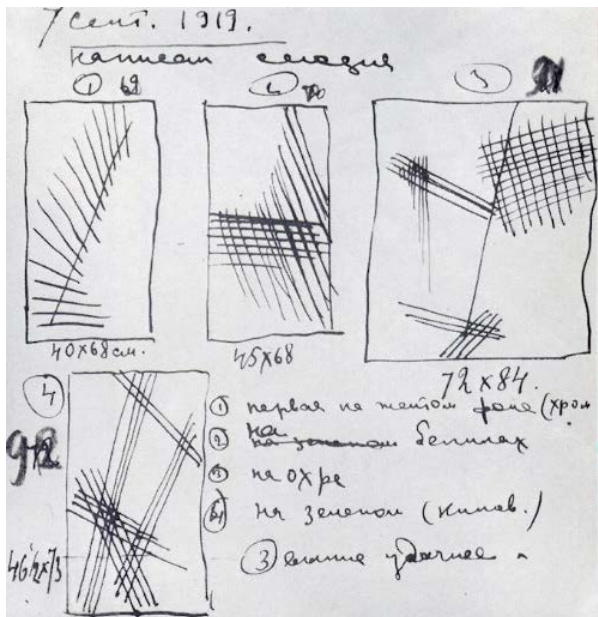 7 сент. 1919.
написал сегодня
① 69 ② 70 ③
40х68 см. 45х68 72 х 84.
④
92
46 1/2 х 73
① первая на желтом фоне (хром
② на белилах
③ на охре
④ на зеленом (кинов.)
③ удачнее